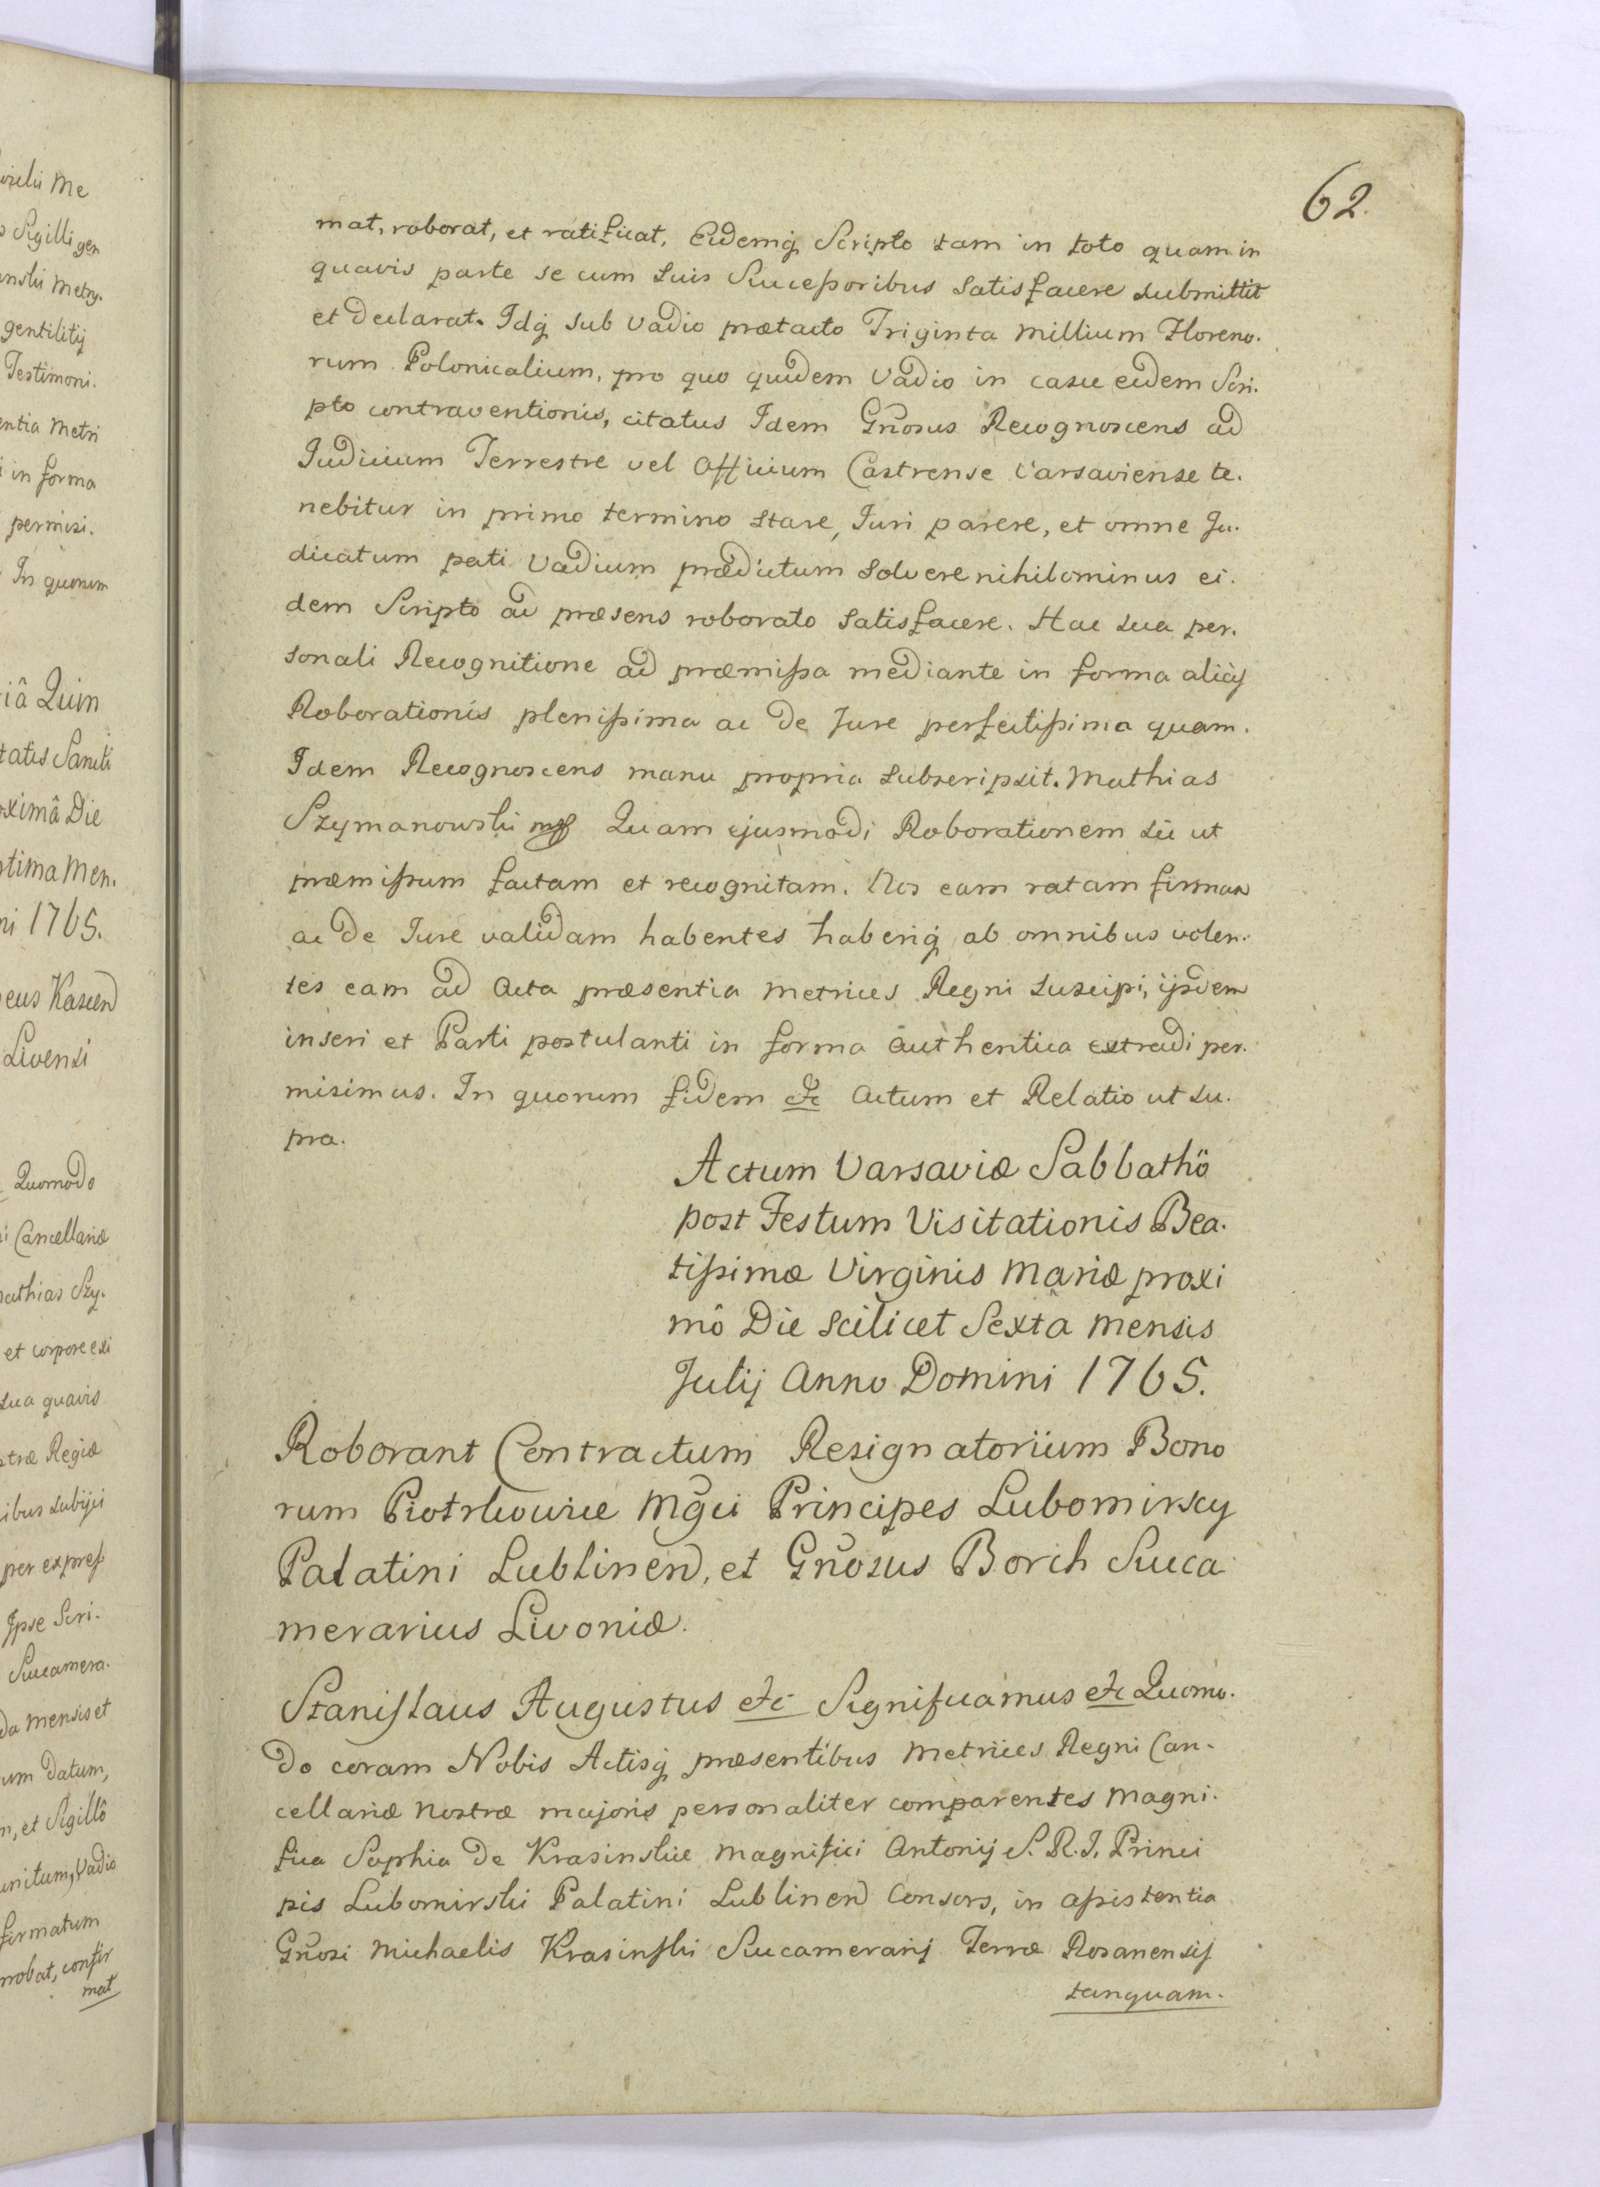 62.
mat, roborat, et ratificat, Eidemq́ Scripto tam in toto quam in
quavis parte se cum suis Succeßoribus satisfacere submittit
et declarat. Idq́ sub vadio prætacto Triginta Millium Floreno.
rum Polonicalium, pro quo quidem Vadio in casu eidem Scri.
pto contraventionis, citatus Idem Gn̄osus Recognoscens ad
Judicium Terrestre vel Officium Castrense Varsaviense te.
nebitur in primo termino stare, Juri parere, et omne Ju.
dicatum pati Vadium prædictum solvere nihilominus ei.
dem Scripto ad præsens roborato satisfacere. Hac sua per.
sonali Recognitione ad præmißa mediante in forma alicújs
Roborationis plenißima ac de Jure perfectißima quam.
Idem Recognoscens manu propria subscripsit. Mathias
Szymanowski mp Quam ejusmodi Roborationem sic ut
præmißum factam et recognitam. Nos eam ratam firmam
ac de Jure validam habentes haberiq́ ab omnibus volen.
tes eam ad Acta præsentia Metrices Regni suscipi, ijsdem
inseri et Parti postulanti in forma authentica extradi per.
misimus. In quorum fidem etc Actum et Relatio ut su.
pra.
Actum Varsaviæ Sabbathô
post Festum Visitationis Bea.
tißimæ Virginis Mariæ proxi
mô Die scilicet Sextâ Mensis
Julij Anno Domini 1765.
Roborant Contractum Resignatorium Bono
rum Piotrkowice Mḡci Principes Lubomirscy
Palatini Lublinen, et Gn̄osus Borch Succa
merarius Livoniæ.
Stanislaus Augustus etc Significamus etc Quomo.
do coram Nobis Actisq́ præsentibus Metrices Regni Can.
cellariæ Nostræ majoris personaliter comparentes Magni.
fica Sophia de Krasinskie Magnifici Antonij S. R. I. Princi
pis Lubomirski Palatini Lublinen Consors, in aßistentia
Gn̄osi Michaelis Krasinski Succamerarij Terræ Rosanensis
tanquam.